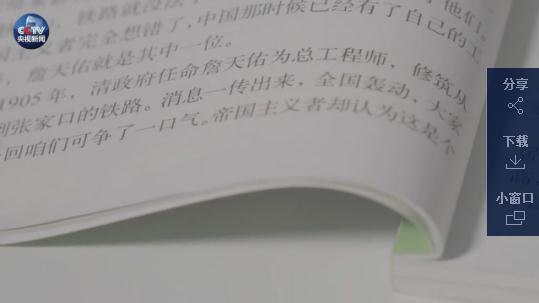 CCTV
央视新闻
，铁路就没法
他们。
主义者完全想错了，中国那时候已经有了自己的工
，詹天佑就是其中一位。
1905年，清政府任命詹天佑为总工程师，修筑从
到张家口的铁路。消息一传出来，全国轰动，大家
回咱们可争了一口气。帝国主义者却认为这是个
分享
下载
小窗口